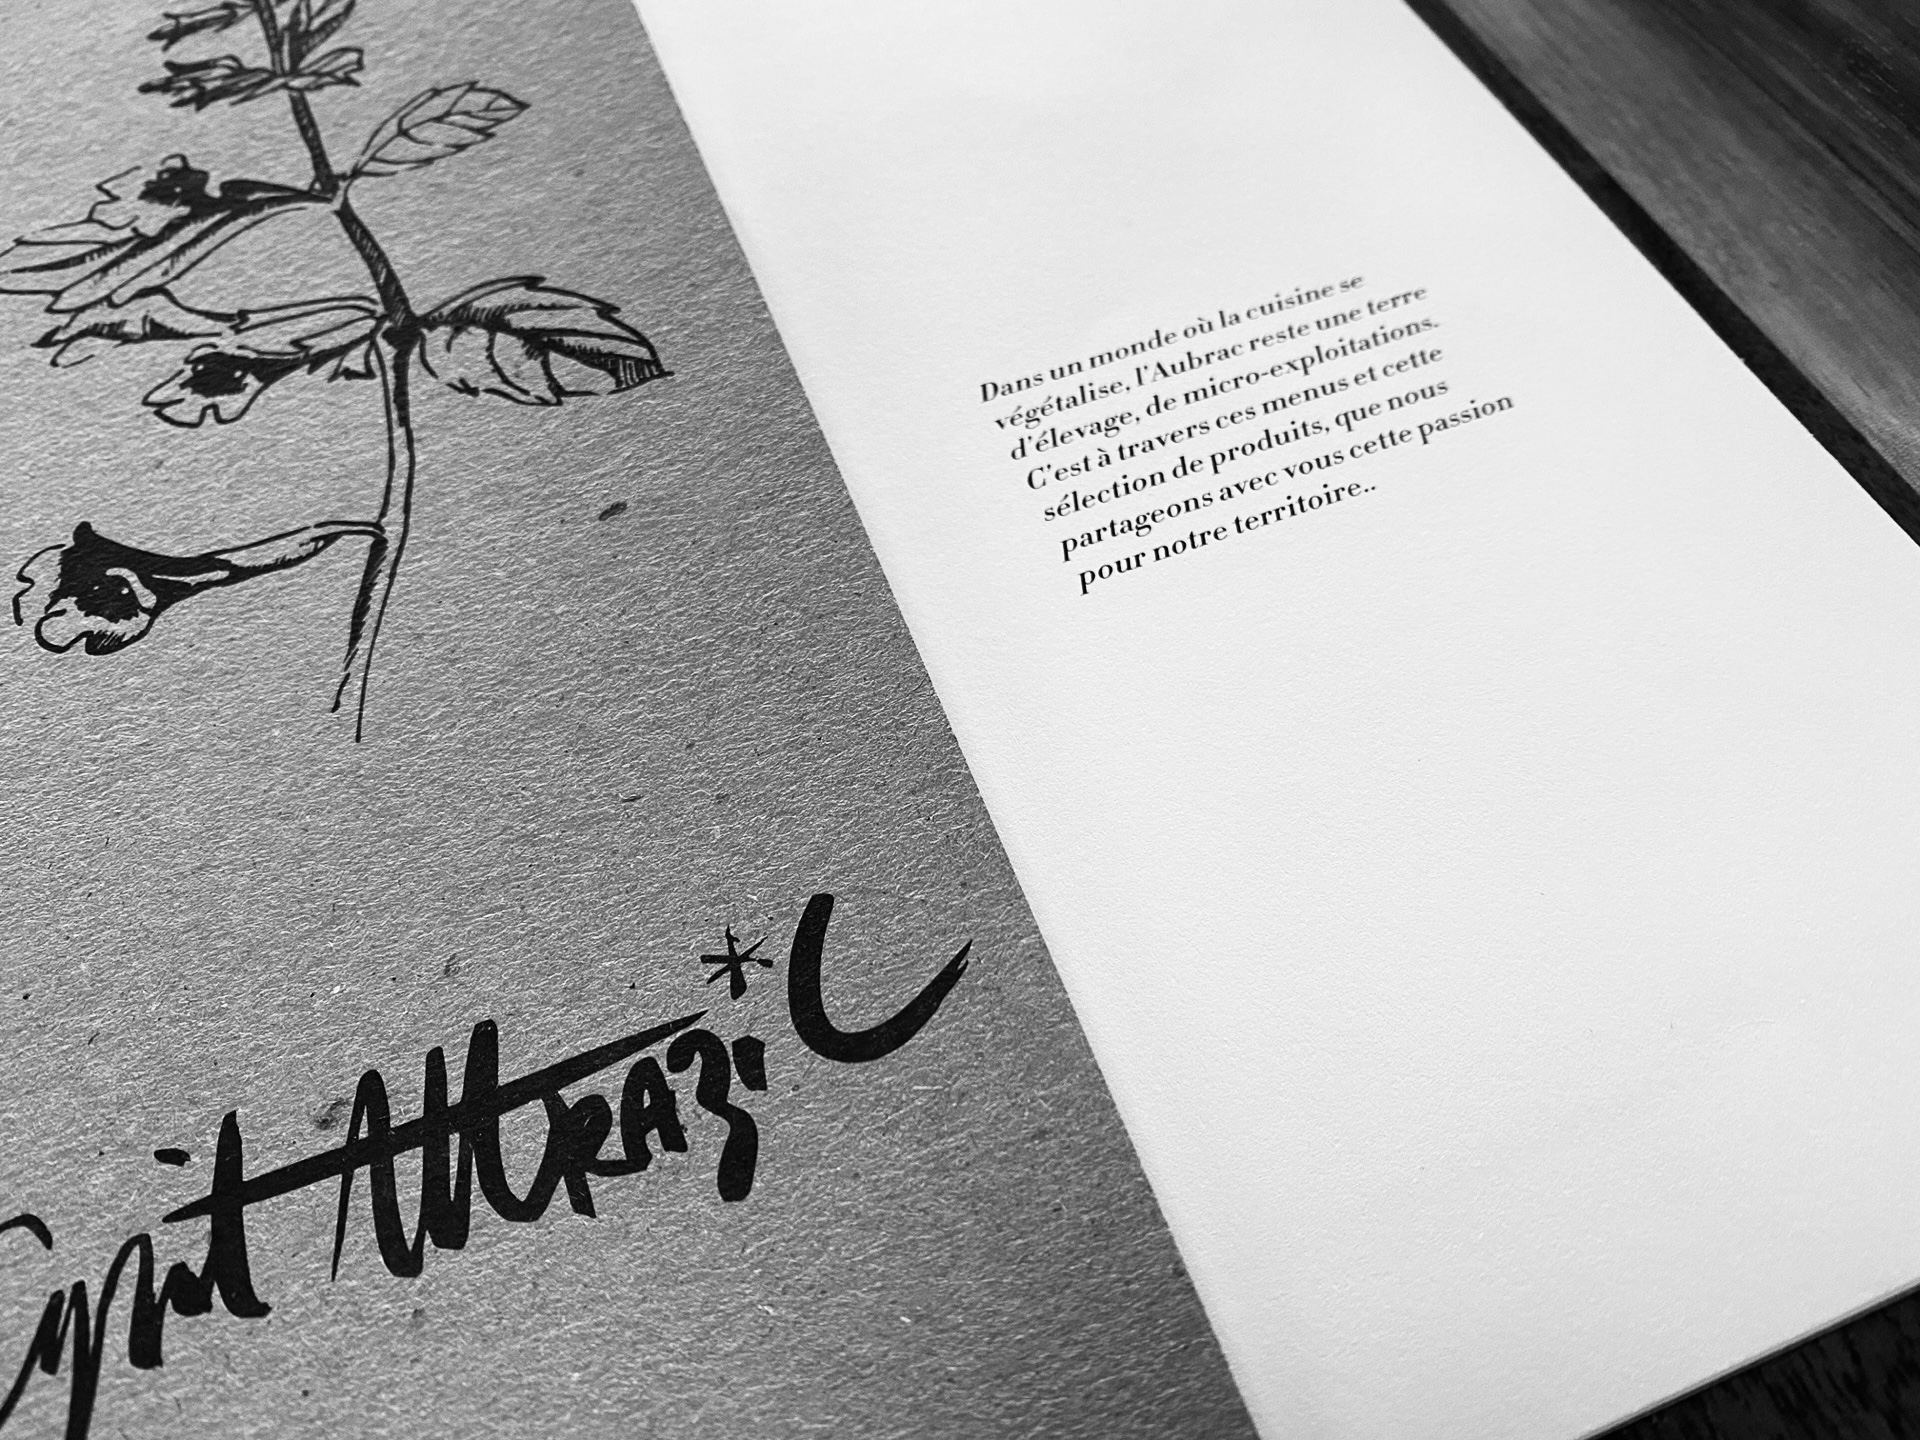 Dans un monde où la cuisine se
végétalise, l'Aubrac reste une terre
d'élevage, de micro-exploitations.
C'est à travers ces menus et cette
sélection de produits, que nous
partageons avec vous cette passion
pour notre territoire..